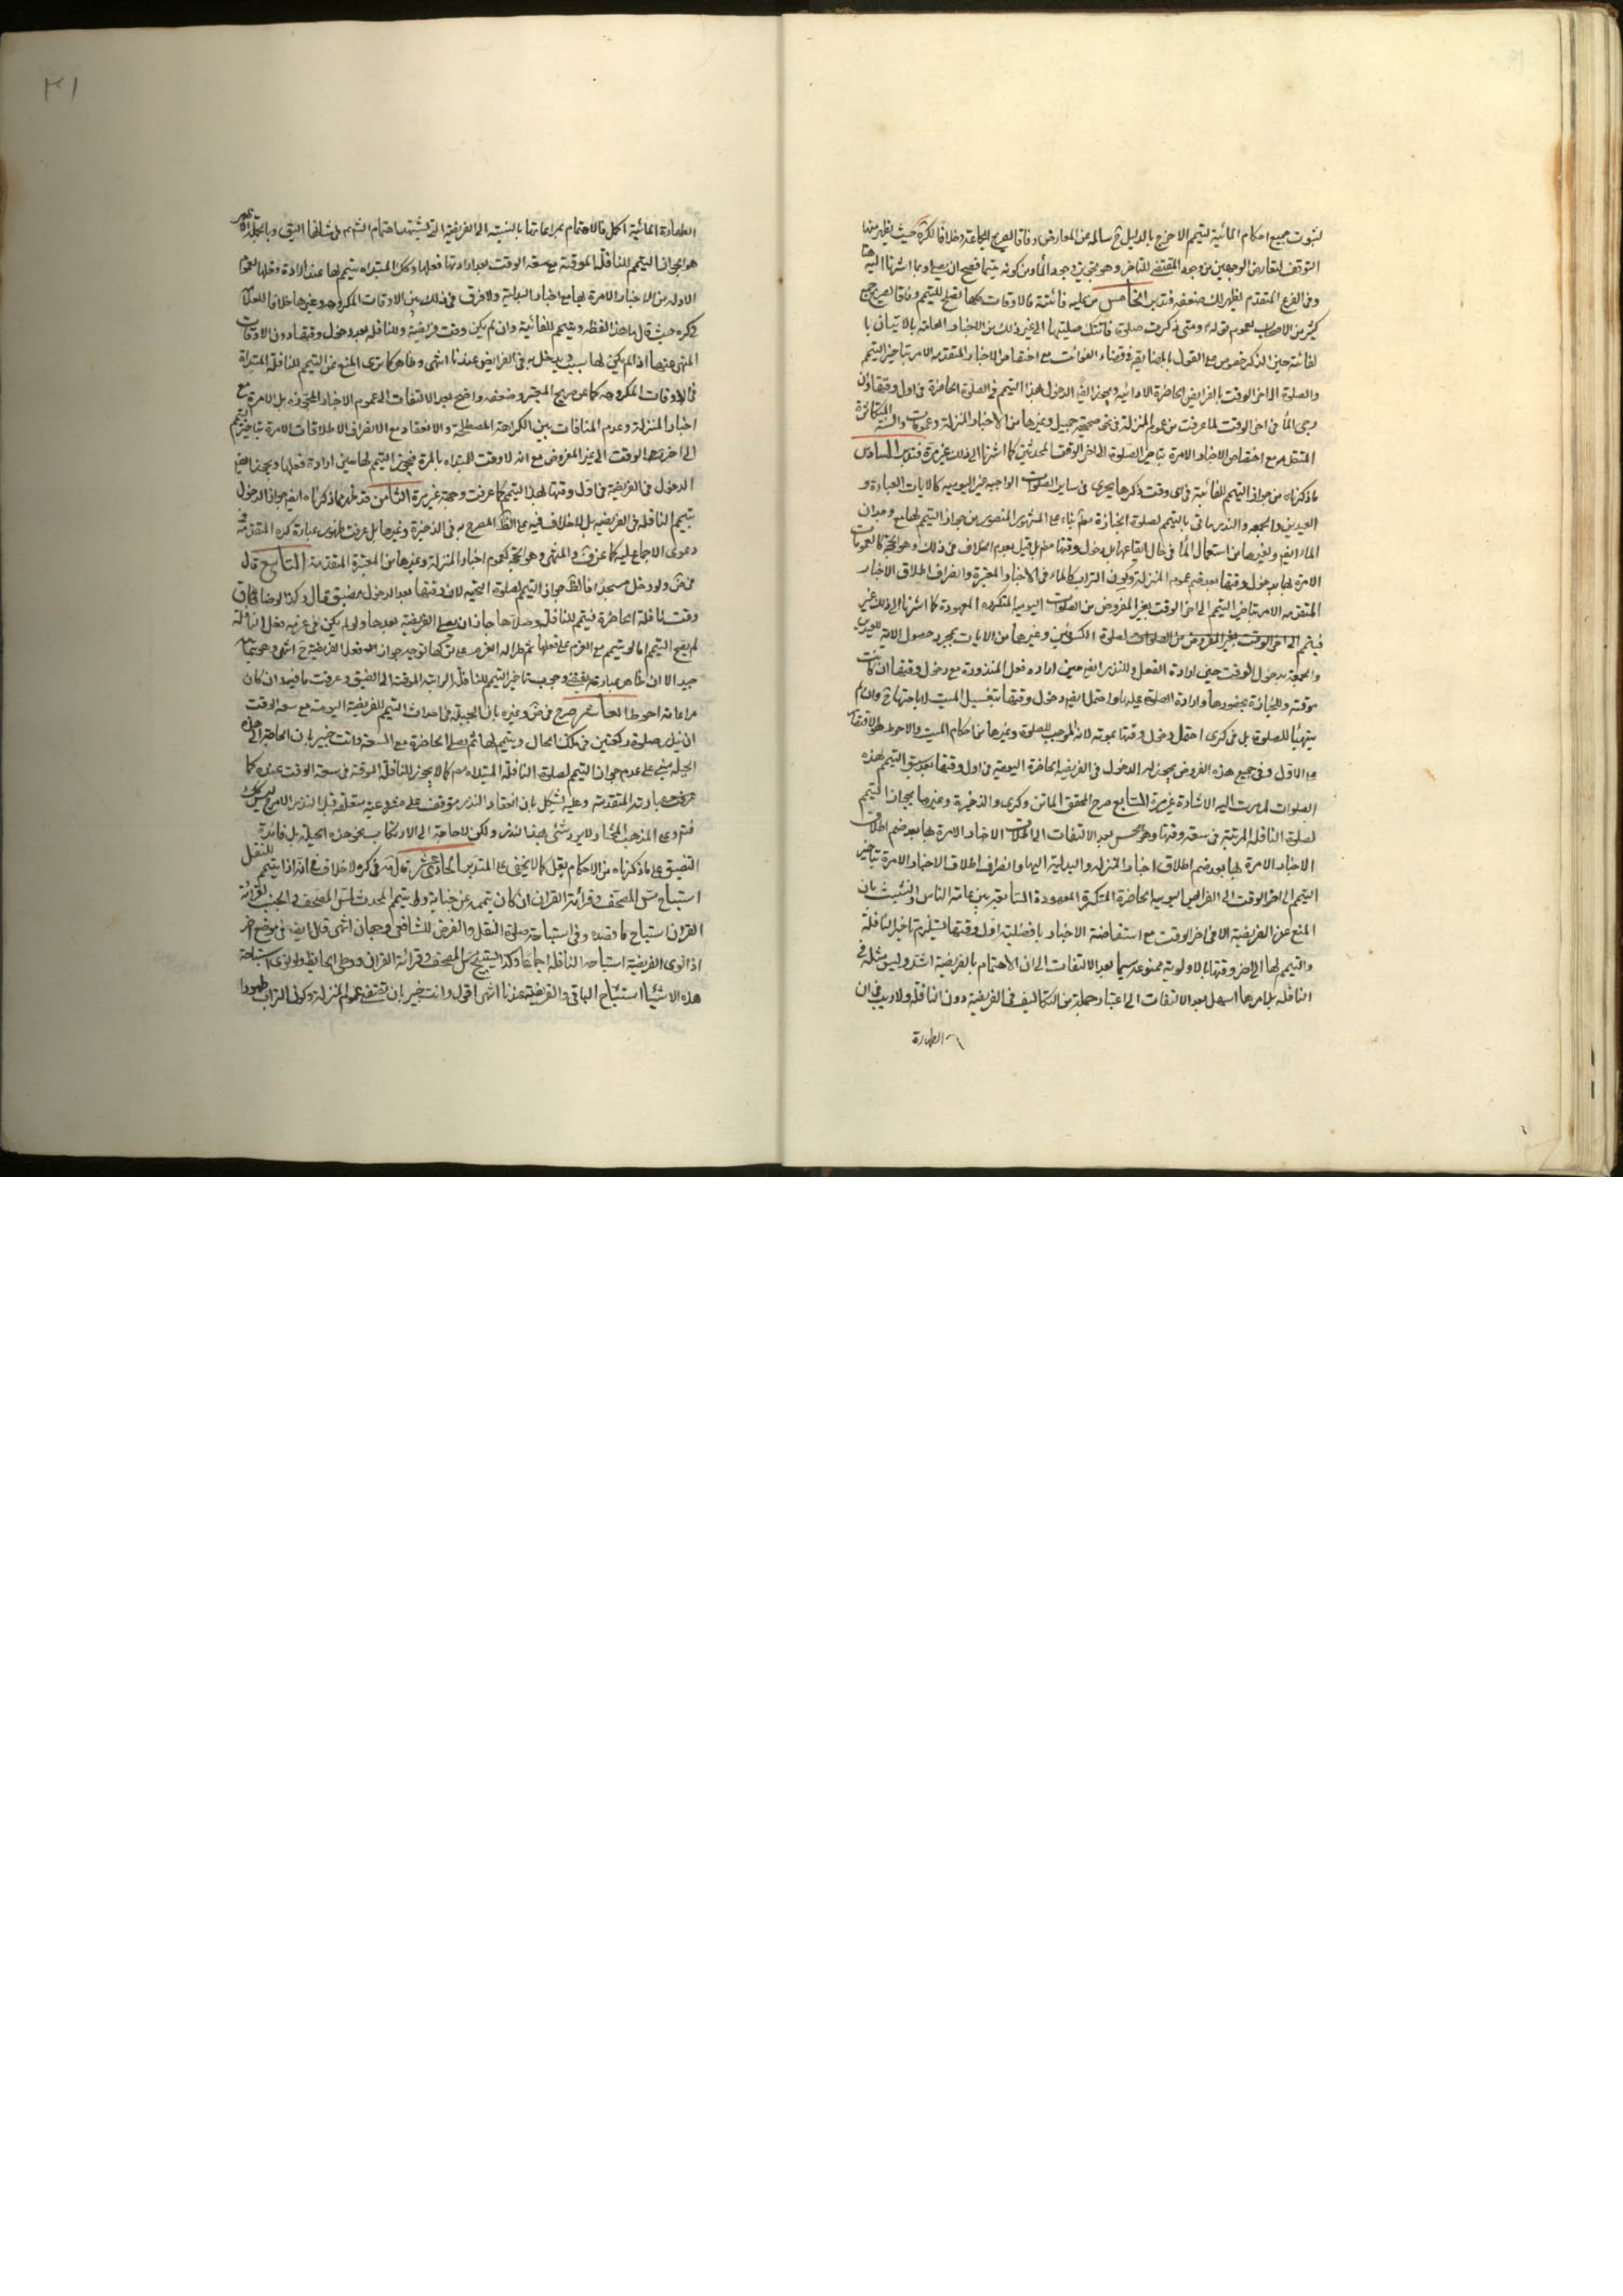 لثبوت جميع احكام المائية للتيمم الا ما خرج بالدليل سالمه عن المعارض وفاقا لصريح لجماعة وخلافا لكره حيث يظهر منها
التوقف لتعارض الوجهين من وجود المقتضى للتاخر وهو تجويز وجود الماء ومن كونه متيمما فصح ان يصلى وبما اشرنا اليه هنا
وفى الفرع المتقدم يظهر لك ضعفه فتدبر الخامس من عليه فائتة فالاوقات كلها تصلح للتيمم وفاقا لصريح جمع
كثير من الاصحاب لعموم قوله ومتى ذكرت صلوة فاتتك صليتها الى غير ذلك من الاخبار الحاكمة بالاتيان با
لفائتة حين الذكر خصوص مع القول بالمضايقة فى قضاء الفوائت مع اختصاص الاخبار المتقدمه الامره بتاخير التيمم
والصلوة الى اخر الوقت بالفرايض الحاضرة الادائيه ويجوز ايضا الدخول بهذا التيمم فى الصلوة الحاضرة فى اول وقتها وان
رجى الماء فى اخر الوقت لما عرفت من عموم المنزلة فى نحو صحيحة جميل وغيرها من الاخبار المنزلة وعمومات والسنة المتكاثرة
مع اختصاص الاخبار الامرة بتاخير الصلوة الى اخر الوقت بالمحدثين كما اشرنا الى ذلك غير مرة فتدبر السادس
ما ذكرناه من جواز التيمم للفائتة فى اى وقت ذكرها يجرى فى ساير الصلوت الواجبه غير اليوميه كالايات العبادة و
العيدين والجمعه والنذر ياتى بالتيمم لصلوة الجنازة مط بناء على المشهور المنصور من جواز التيمم لها مع وجدان
الماء ايضا ولغيرها من استعمال الماء فى حال ايقاعها بل دخول وقتها مط بل قيل بعدم الخلاف فى ذلك وهو الحجة كالعمومات
الامرة لها بدخول وقتها بعد ضم عموم المنزلة وكون التراب كالماء فى الاخبار المعتبرة وانصراف اطلاق الاخبار
المتقدمه الامره بتاخير التيمم الى اخر الوقت بغير المفروض من الصلوات اليومية المتكرره المعهودة كما اشرنا الى ذلك غير
فيتمم الى اخر الوقت بغير المفروض من الصلوات لصلوة الكسوفين وغيرها من الايات بمجرد حصول الاية للعيدين
والجمعة بدخول الوقت حين ارادة الفعل وللنذر ايضا حين اراده فعل المنذورة مع دخول وقتها ان كانت
موقته وللجنازة بحضورها وارادة الصلوة عليه واحتمل ايضا دخول وقتها بتغسيل الميت لاباحتها ح وان لم
يتهيئا للصلوة بل فى كرى احتمل دخول وقتها بموته لانه الموجب للصلوة وغيرها من احكام الميت والاحوط هو الاقتصار
على الاول وفى جميع هذه الفروض يجوز له الدخول فى الفريضه الحاضرة اليوميه فى اول وقتها بعد سبق التيمم لهذه
الصلوات لما مرت اليه الاشارة غير مرة السابع صرح المحقق الماتن وكرى والذخيرة وغيرها بجواز التيمم
لصلوة النافلة المرتبة فى سعة وقتها وهو حسن بعد الالتفات الى اطلاقات الاخبار الامرة بها بعد ضم اطلاق
الاخبار الامرة بها بعد ضم اطلاق اخبار المنزله والبدلية اليها وانصراف اطلاق الاخبار الامرة بتاخير
التيمم الى اخر الوقت الى الفرايض اليوميه الحاضرة المتكررة المعهودة الشايعة بين عامة الناس والتشبث بان
المنع عن الفريضة الا فى اخر الوقت مع استفاضة الاخبار بافضلية اول وقتها يستلزم تاخير النافلة
والتيمم لها الى اخر وقتها بالاولوية ممنوعه سيما بعد الالتفات الى ان الاهتمام بالفريضة اشد وليس مثله فى
النافله بل امرها اسهل بعد الالتفات الى اعتبار جملة من التكاليف فى الفريضة دون النافلة ولا ريب فى ان
الطهارة
٣١
الطهارة المائية اكمل فالاهتمام بمراعاتها بالنسبة الى الفريضة التى اشتهر اهتمام الشرع فى شانها اليق وبالجملة فظهر
هو الجواز التيمم للنافلة الموقتة مع سعة الوقت بعد ارادتها فعلها وكك المبتداه يتيمم لها عند ارادة فعلها لعموم
الادله من الاخبار الامرة بها مع اخبار البدلية ولا فرق فى ذلك بين الاوقات المكروهه وغيرها خلافا للعلامه
فى كره حيث قال ما هذا لفظه ويتيمم للفائتة وان لم يكن وقت فريضة وللنافله بعد دخول وقتها دون الاوقات
المنهى عنها اذا لم يكن لها سبب ويدخل به فى الفرايض عندنا انتهى وظاهره كما ترى المنع عن التيمم للنافلة المبتداة
فى الاوقات المكروهه كما عن صريح المعتبر وضعفه واضح بعد الالتفات الى عموم الاخبار المجوزه بل الامرة مع
اخبار المنزلة وعدم المنافات بين الكراهة المصطلحة والانعقاد مع الانصراف الاطلاقات الامرة بتاخير التيمم
الى اخر الوقت الى غير المفروض مع انه لا وقت للمبتداه بالمرة فيجوز التيمم لها حين ارادة فعلها ويجوز ايضا
الدخول فى الفريضة فى اول وقتها بهذا التيمم كما عرفت وجهه غير مرة الثامن قد ظهر مما ذكرناه ايضا جواز الدخول
بتيمم النافله فى الفريضه بل لا خلاف فيه على الظ المصرح به فى الذخيرة وغيرها بل عرفت ظهور عبارة كره المتقدمة فى
دعوى الاجماع عليه كما عن ف والمنتهى وهو الحجة كعموم اخبار المنزلة وغيرها من المعتبرة المقدمة التاسع قال
فى ض ولو دخل مسجدا فالظ جواز التيمم لصلوة التحيه لان وقتها بعد الدخول مضيق قال وكذا لو ضاق
وقت نافلة الحاضرة فيتمم للنافلة وصلاها جاز ان يصلى الفريضة بعدها ولو لم يكن فى عزمه فعل النافلة
لم يصح التيمم اما لو تيمم مع العزم على فعلها ثم طرا له العزم على تركها توجه جواز فعل الفريضة ح انتهى وهو
جيد الا ان ظاهر عبارته يقتضى وجوب تاخير التيمم للنافلة الراتبه الموقتة الى الضيق وعرفت ما فيه وان كان
مراعاته احوط العاشر صرح فى ض وغيره بان الحيلة فى احداث التيمم للفريضة اليوميه مع سعه الوقت
ان ينذر صلوة ركعتين فى تلك الحال ويتيمم لها ثم يصلى الحاضرة مع السعة وانت خبير بان الحاجة الى هذه
الحيلة مبنى على عدم جواز التيمم لصلوة النافلة المبتداه مط كما لا يجوز للنافلة الموقتة فى سعة الوقت عنده كما
عرفت عبارته المتقدمة وعليه يشكل بان انعقاد النذر متوقف على مشروعية متعلقه قبل النذر
فتم وعلى المذهب المختار لا يرد شئ بهذا النذر ولكن لا حاجة الى الارتكاب بنحو هذه الحيلة بل فائدة
التضيق على ما ذكرناه من الاحكام يقل كما لا يخفى على المتدبر الحاديعشر قال فى كره لا خلاف فى انه اذا تيمم للنفل
استباح مس المصحف وقرائة القران ان كان تيممه عن جنابة ولو تيمم المحدث لمس المصحف او الجنب لقرائة
القران استباح ما قصده وفى استباحة صلوة النفل والفرض للشافعى وجهان انتهى قال ايضا فى موضع اخر
اذا نوى الفريضة استباحه النافله اجماعا وكذا يستبيح مس المصحف وقرائة القران ووطى الحائض ولو نوى استباحة
هذه الاشياء استباح الباقى والفريضة عندنا انتهى اقول وانت خبير بان مقتضى عموم المنزلة وكون التراب طهورا